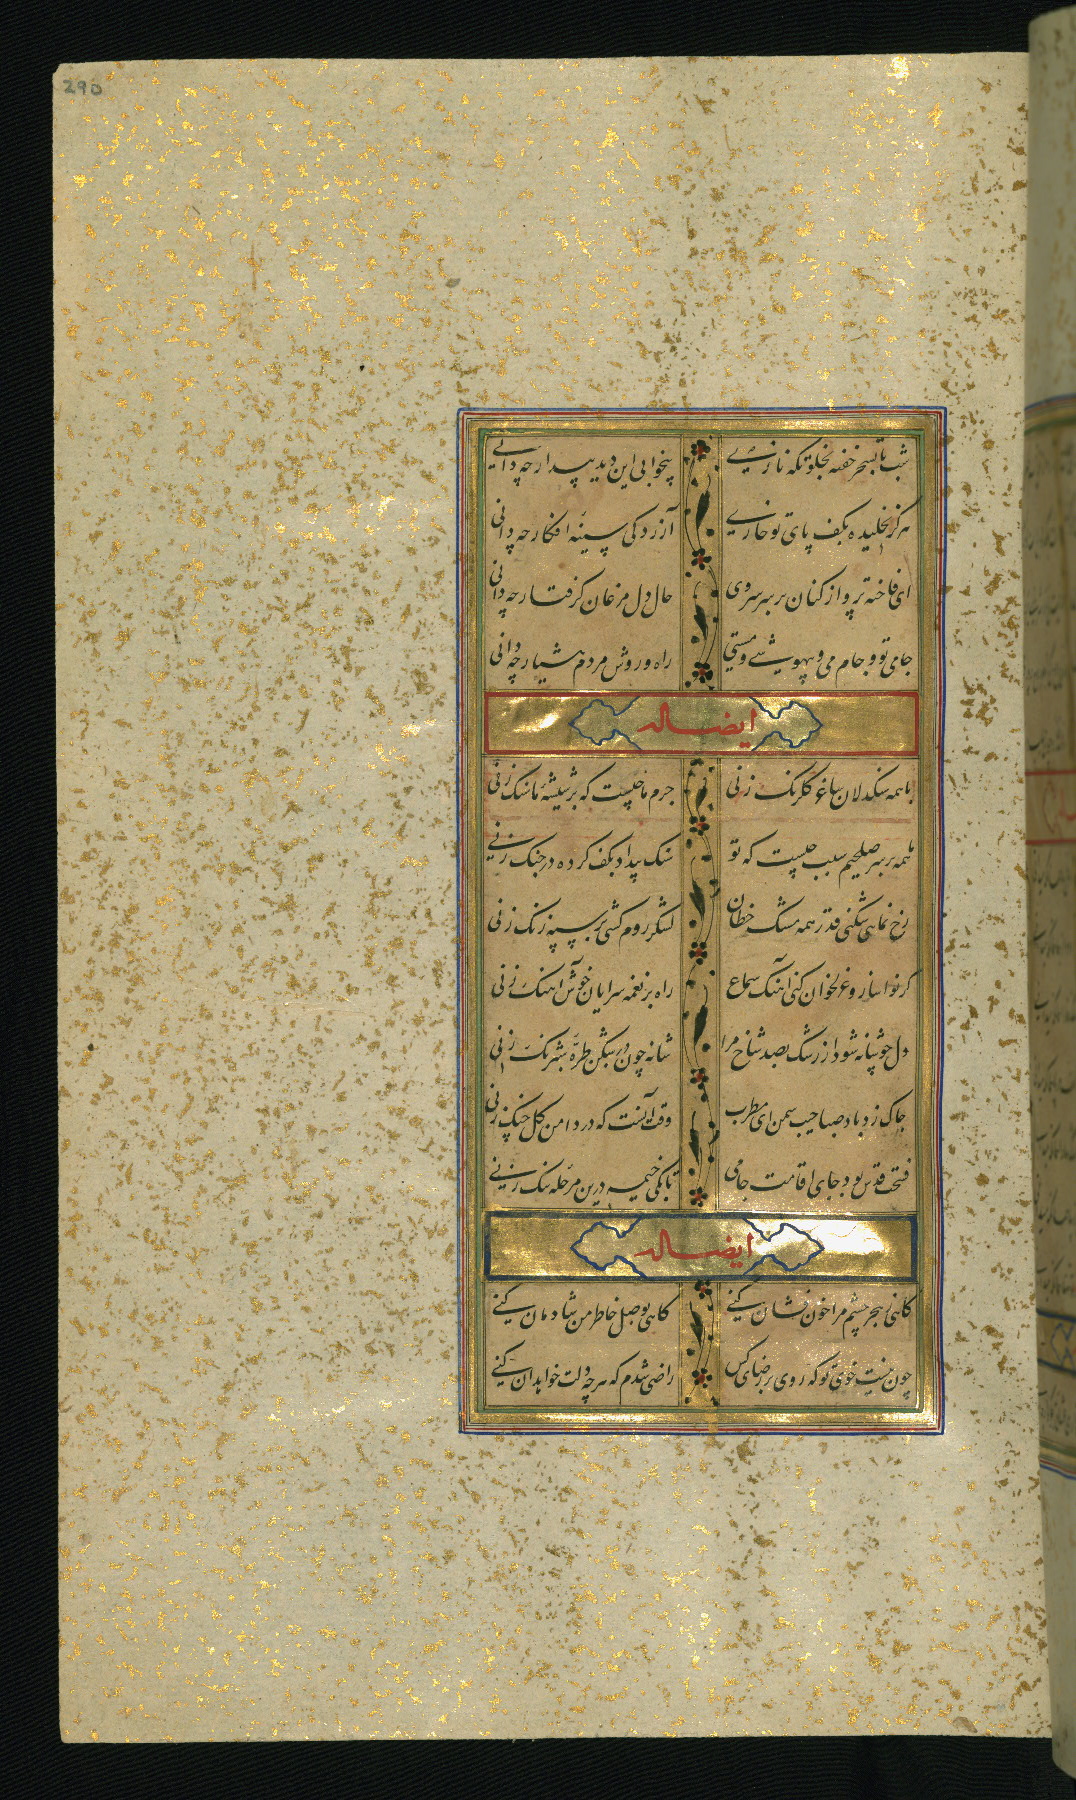 290
شب تا بسحر خفته بخلوتگه نازی بیخوابی این دیده بیدار چه دانی
هرگز نخلیده بکف پای تو خاری آزردگی سینه افکار چه دانی
ای فاخته پرواز کنان بر سر سروی حال دل مرغان گرفتار چه دانی
جامی تو و جام می و بیهوشی و مستی راه و روش مردم هشیار چه دانی
ایضاله
باهمه سنگدلان ساغر گلرنگ زنی جرم ما چیست که بر شیشه ما سنگ زنی
ما همه بر سر صلحیم سبب چیست که تو سنگ بیداد بکف کرده در جنگ زنی
رخ نمایی شکنی قدر همه مشک خطان لشکر روم کشی بر سپه زنگ زنی
گر نوا ساز و غزلخوان کنی آهنگ سماع راه بر نغمه سرایان خوش آهنگ زنی
دل چو شانه شود از رشک بصد شاخ مرا شانه چون در شکن طره شبرنگ زنی
چاک زد باد صبا جیب سمن ای مطرب وقت آنست که در دامن گل چنگ زنی
فسحت قدس بود جای اقامت جامی تا بکی خیمه درین مرحله تنگ زنی
ایضاله
گاهی ز هجر چشم مرا خون فشان کنی گاهی بوصل خاطر من شادمان کنی
چون نیست خوی تو که روی بر رضای کس راضی شدم که هر چه دلت خواهد آن کنی